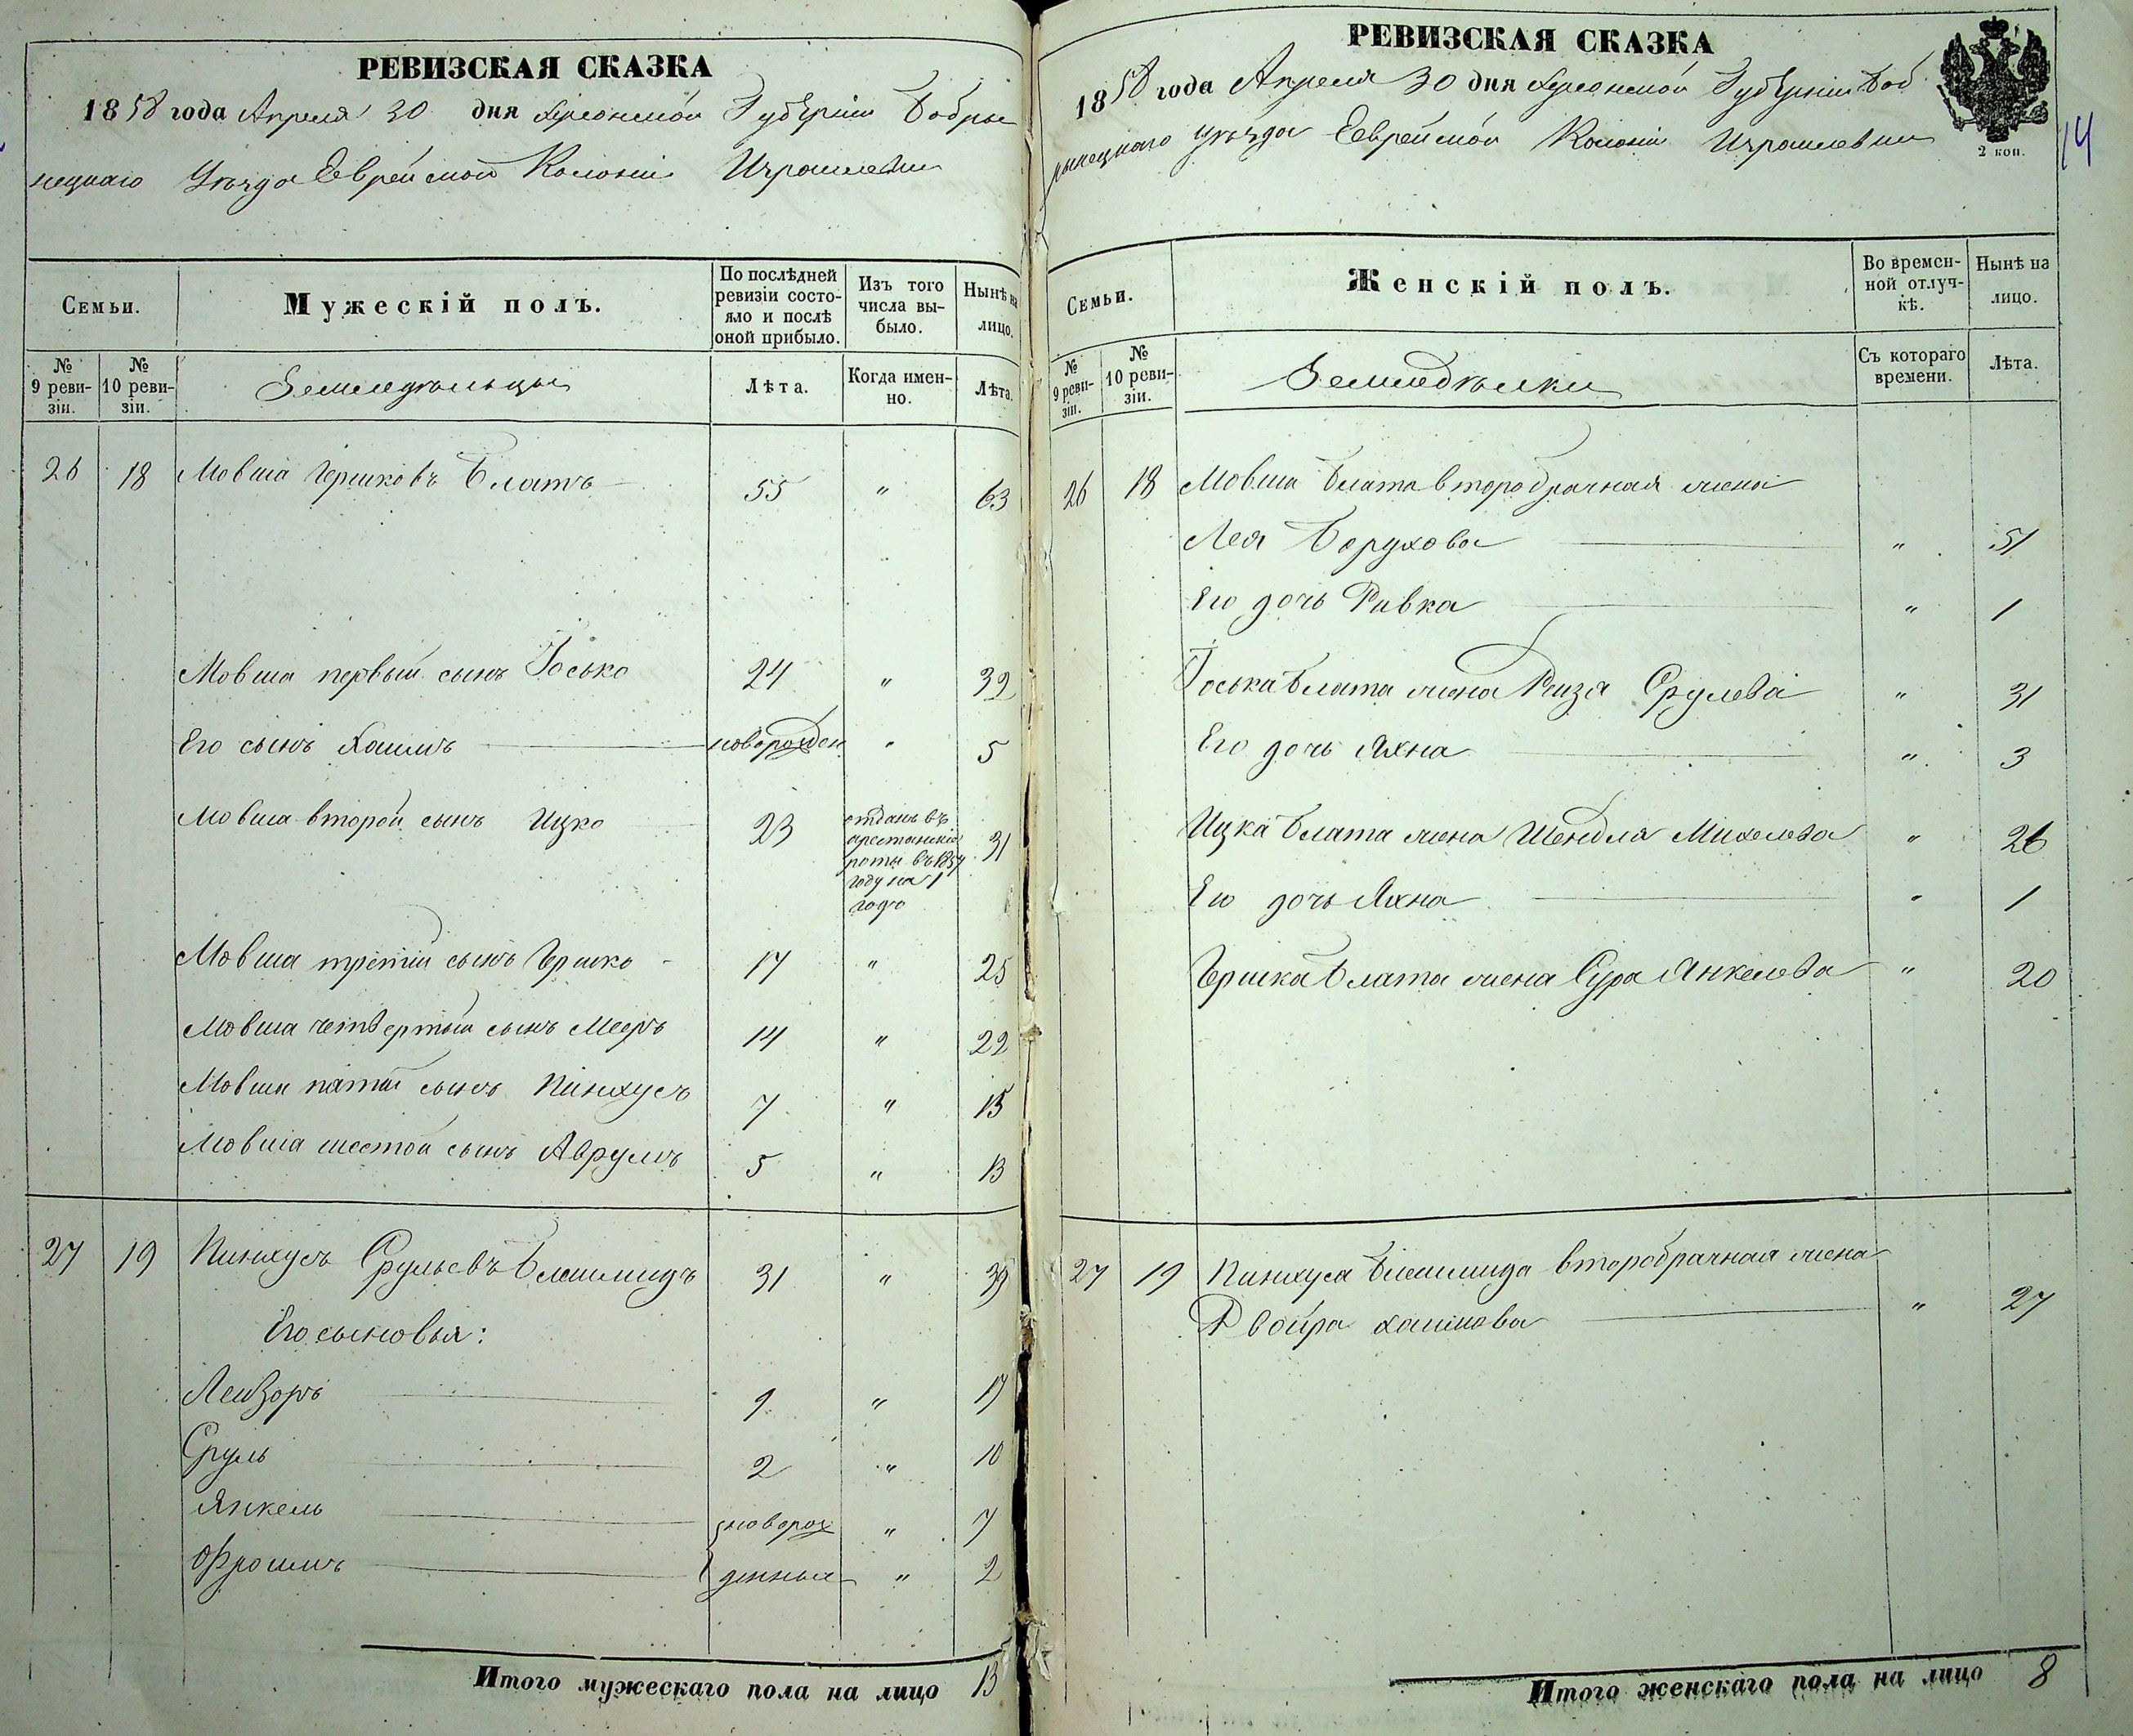 РЕВИЗСКАЯ СКАЗКА
1858 года Апреля 30 дня Херсонской Губерніи Бобры
нецкаго Уѣзда Еврейской Колоніи Израилевки
Семьи.
Мужескій полъ.
По послѣдней
ревизіи состо-
яло и послѣ
оной прибыло.
Изъ того
числа вы-
было.
Нынѣ на
лицо.
№
9 реви-
зіи.
№
10 реви-
зіи.
Земледѣльцы
Лѣта.
Когда имен-
но.
Лѣта.
26 18 Мовша Гершковъ Блатъ 55 " 63
Мовша первый сынъ Іосько 24 " 32
Его сынъ Хаимъ новорожден " 5
Мовша второй сынъ Ицко 23 31
отданъ въ
арестанскіе
роты въ 1857
году на 1
годъ
Мовша третій сынъ Гершко 17 " 25
Мовша четвертый сынъ Мееръ 14 " 22
Мовша пятый сынъ Пинхусъ 7 " 15
Мовша шестой сынъ Аврумъ 5 " 13
27 19 Пинхусъ Срульевъ Блашмидъ 31 " 39
Его сыновья:
Лейзоръ 9 " 17
Сруль 2 " 10
Янкель новорож " 7
Фроимъ денные " 2
Итого мужескаго пола на лицо 13
РЕВИЗСКАЯ СКАЗКА
1858 года Апреля 30 дня Херсонской Губерніи Боб
рынецкаго Уѣзда Еврейской Колоніи Израилевки
2 коп.
14
Семьи.
Женскій полъ.
Во времен-
ной отлуч-
кѣ.
Нынѣ на
лицо.
№
9 реви-
зіи.
№
10 реви-
зіи.
Земледѣлки
Съ котораго
времени.
Лѣта.
26 18 Мовша Блата второбрачная жена
Лея Борухова " 51
Его дочь Ривка " 1
Іоська Блата жена Рейзя Срулева " 31
Его дочь Яхна " 3
Ицка Блата жена Шендля Михелева " 26
Его дочь Яхна " 1
Гершка Блата жена Сура Янкелева " 20
27 19 Пинхуса Блашмида второбрачная жена
Двойра Хаимова " 27
Итого женскаго пола на лицо 8